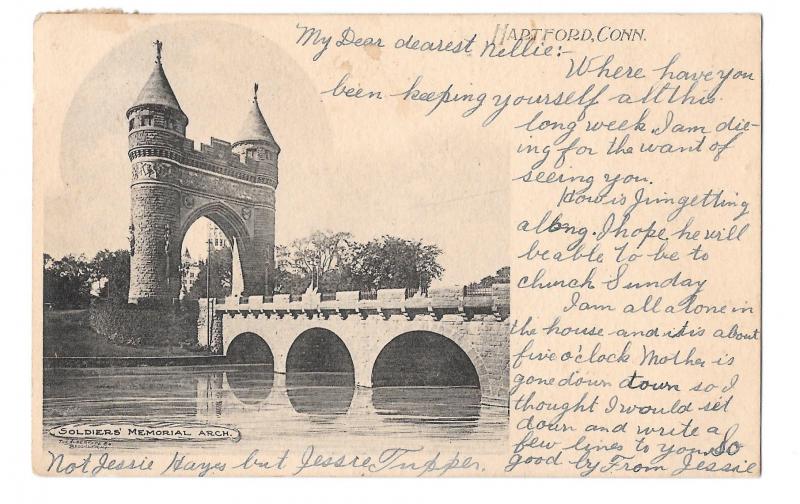 HARTFORD, CONN.
My Dear dearest Nellie:-
Where have you
been keeping yourself all this
long week. I am die-
ing for the want of
seeing you.
How is Jim getting
along. I hope he will
be able to be to
church Sunday
I am all alone in
the house and it is about
five o'clock Mother is
gone down down so I
thought I would set
down and write a
few lines to you. So
good by From Jessie
Not Jessie Hayes but Jessie Tupper.
SOLDIERS' MEMORIAL ARCH.